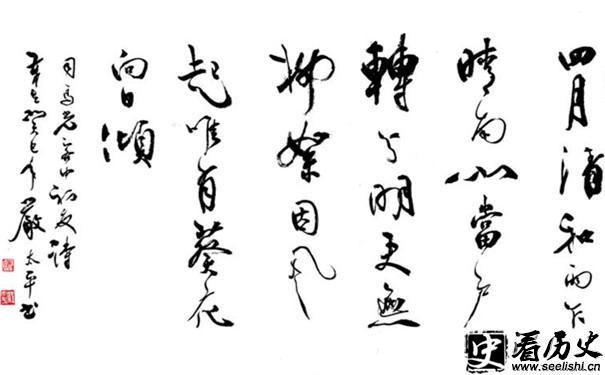 四月清和雨乍
晴南山當户
轉分明更無
柳絮因風
起唯有葵花
向日傾
司馬光客中初夏詩
癸巳年嚴太平書
史看历史
www.seelishi.cn